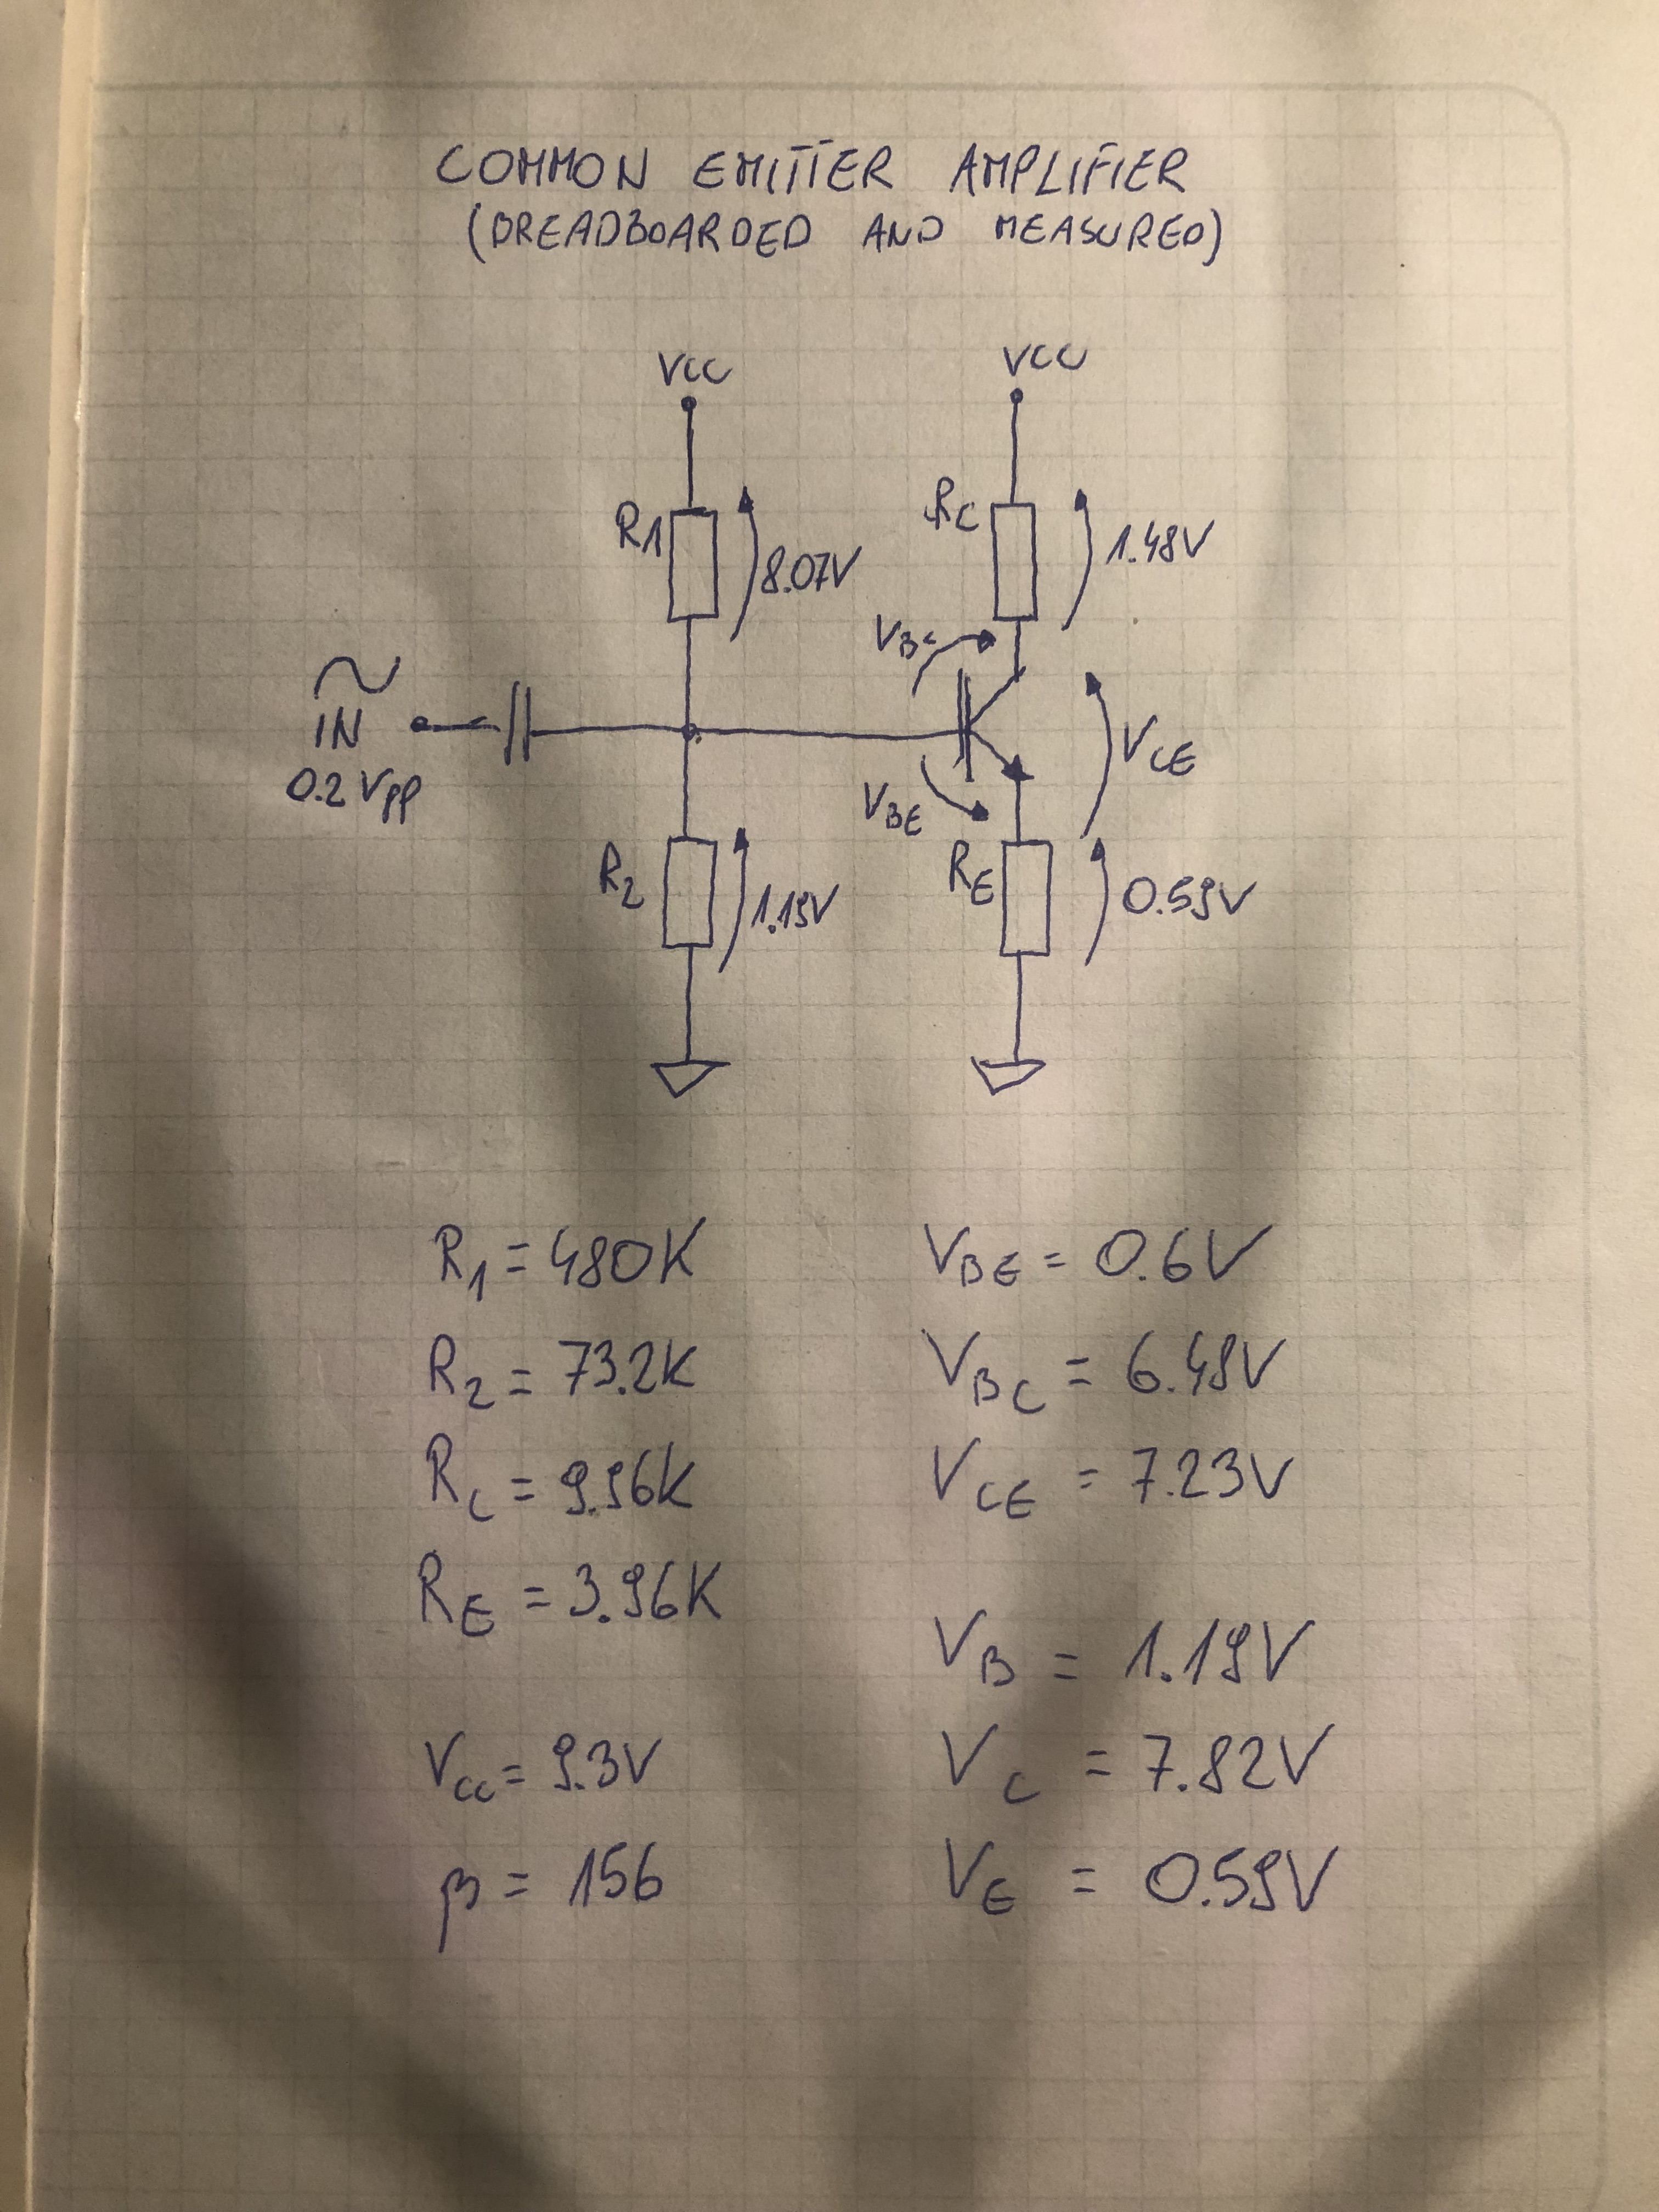 COMMON EMITTER AMPLIFIER
(BREADBOARDED AND MEASURED)
VCC
VCC
R1
8.07V
RC
1.48V
VBC
IN
0.2 Vpp
VBE
VCE
R2
1.19V
RE
0.59V
R1 = 480K
R2 = 73.2K
RC = 9.96K
RE = 3.96K
VCC = 9.3V
β = 156
VBE = 0.6V
VBC = 6.48V
VCE = 7.23V
VB = 1.19V
VC = 7.82V
VE = 0.59V